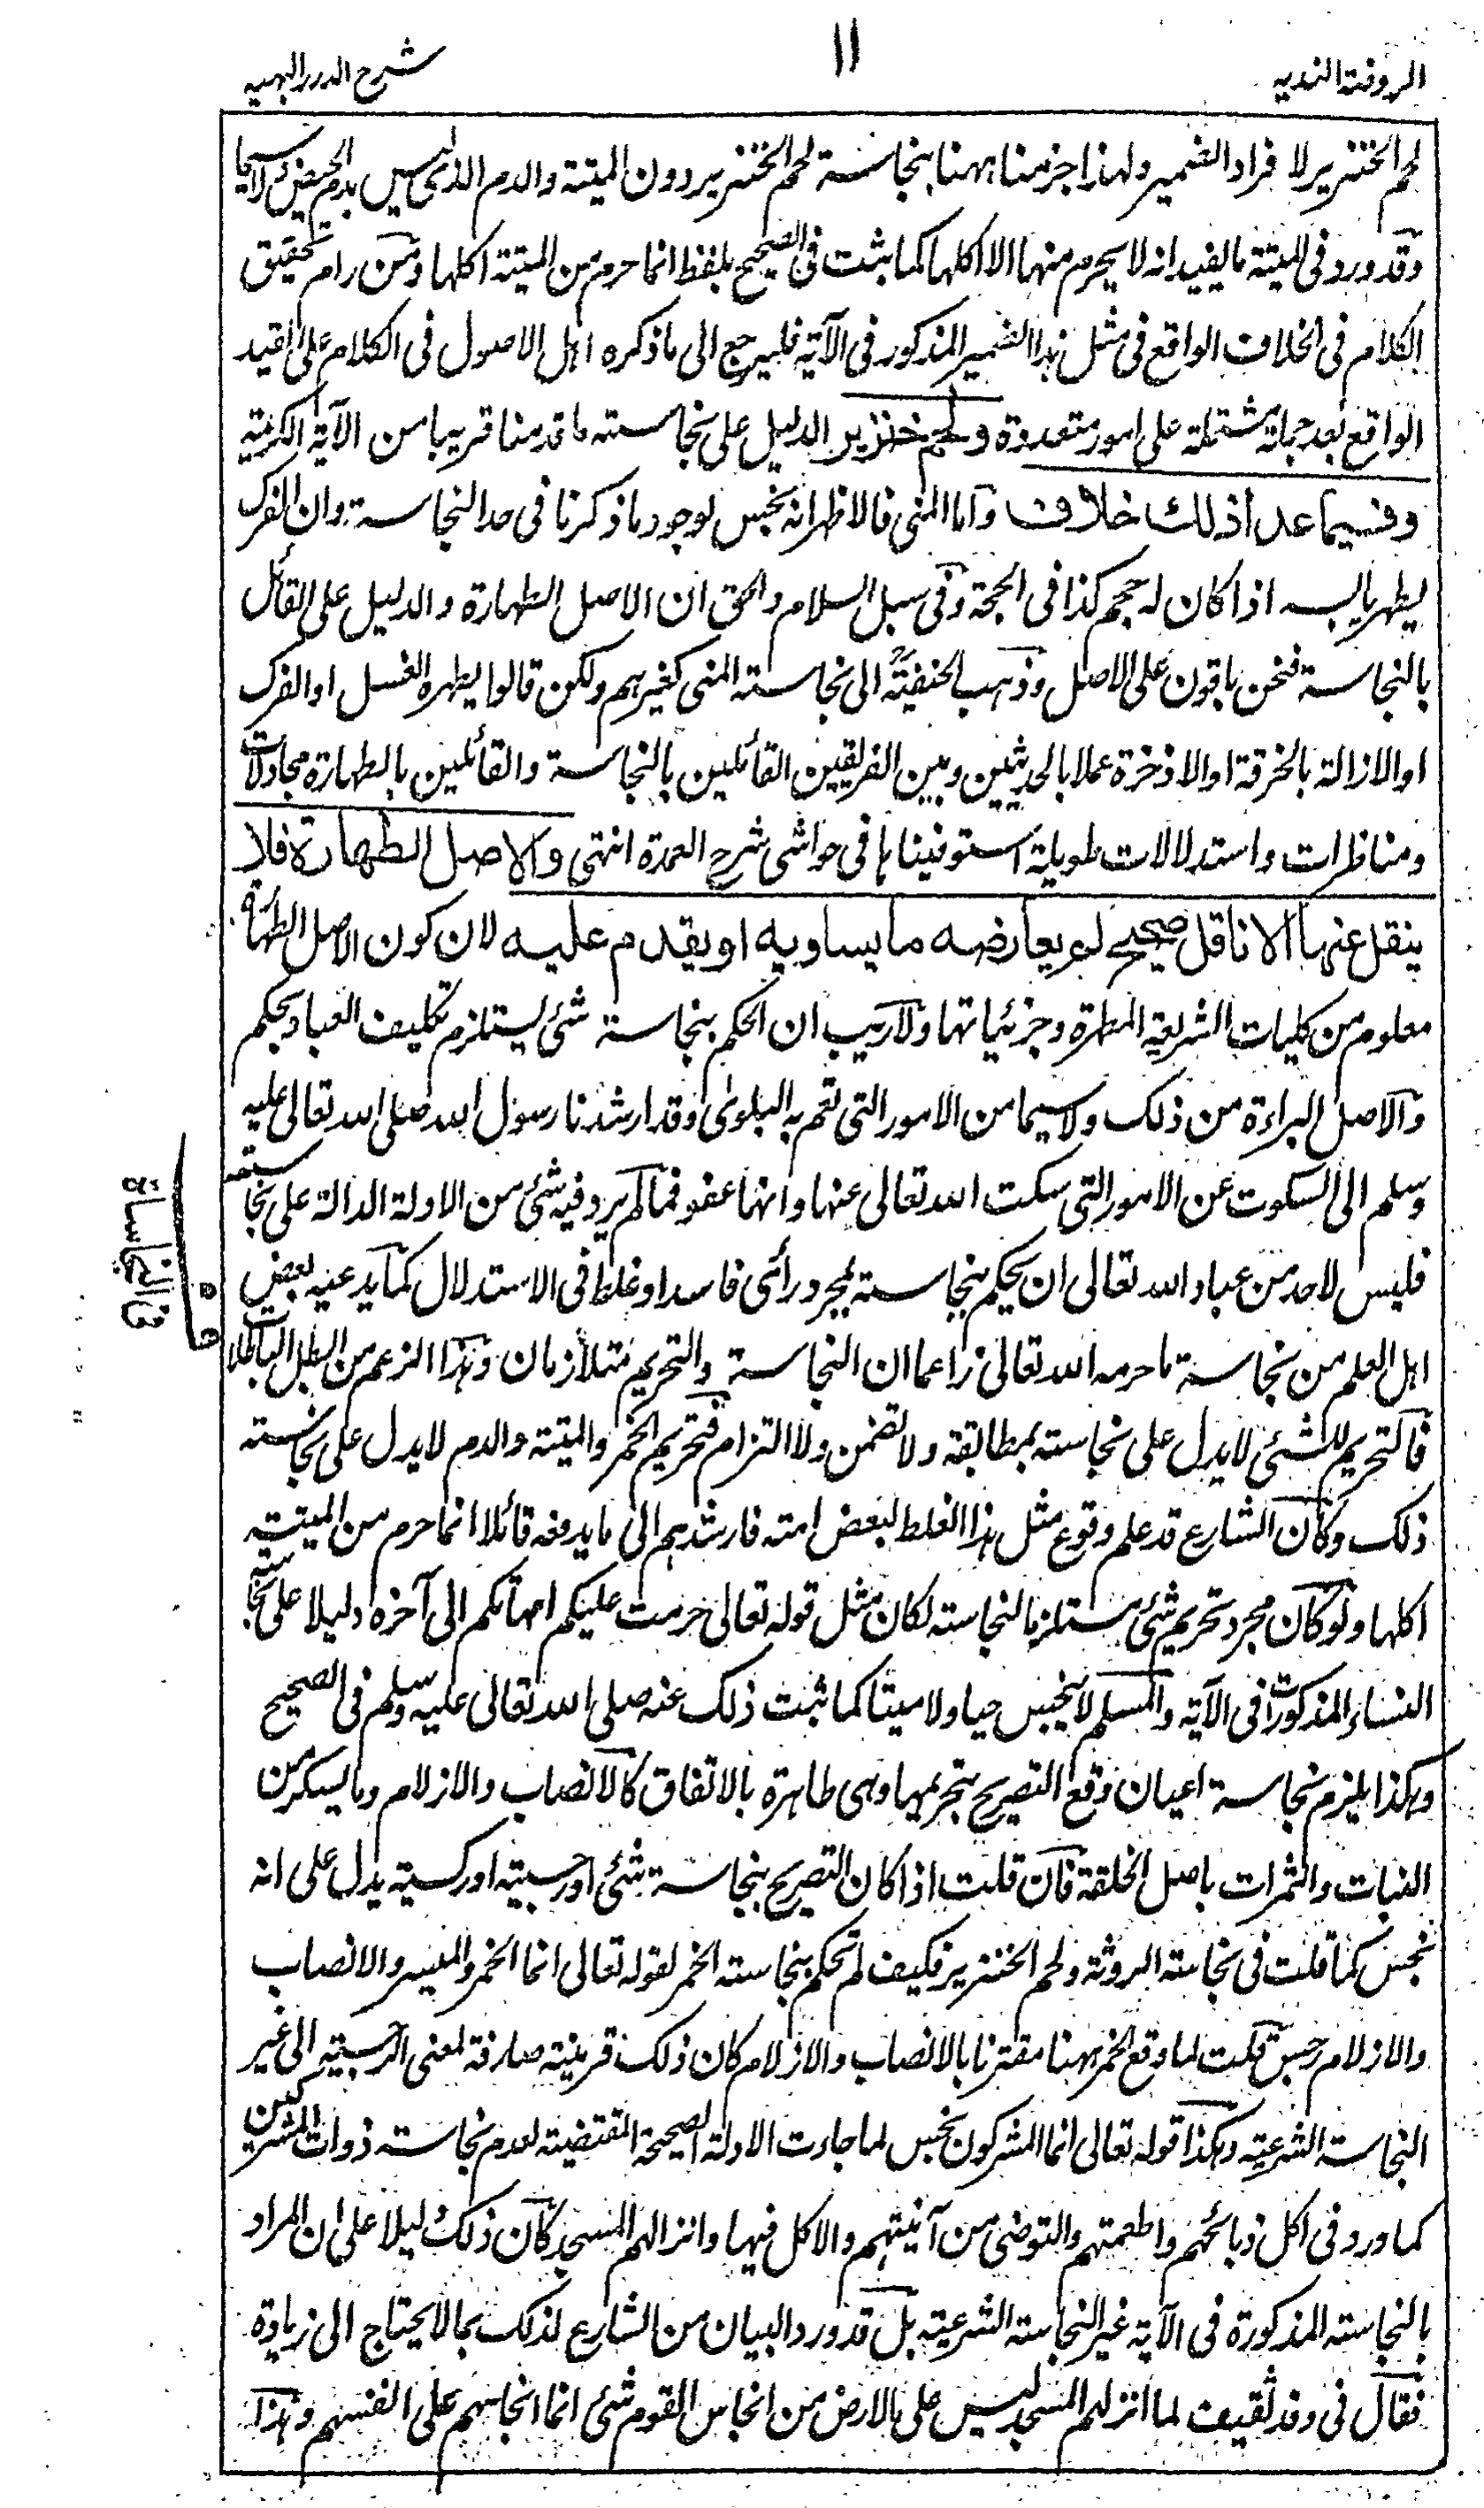 الروضة الندية
١١
شرح الدرر البهية
لحم الخنزير لافراد الضمير ولهذا جزمنا ههنا بنجاسة لحم الخنزير دون الميتة والدم الذي ليس بدم الحيض ولا سيما
وقد ورد في الميتة ما يفيد انه لا يحرم منها الا اكلها كما ثبت في الصحيح بلفظ انما حرم من الميتة اكلها ومن رام تحقيق
الكلام في الخلاف الواقع في مثل هذا الضمير المذكور في الآية فليرجع الى ما ذكره اهل الاصول في الكلام على القيد
الواقع بعد جملة مشتملة على امور متعددة ولحم خنزير الدليل على نجاسته ما قدمنا قريبا من الآية الكريمة
وفيما عدا ذلك خلاف واما المني فالاظهر انه نجس لوجود ما ذكرنا في حد النجاسة وان الفرك
يطهر يابسه اذا كان له حجم كذا في الحجة وفي سبل السلام والحق ان الاصل الطهارة والدليل على القائل
بالنجاسة فنحن باقون على الاصل وذهب الحنفية الى نجاسة المني كغيرهم ولكن قالوا يطهره الغسل او الفرك
او الازالة بالخرقة او الاذخرة عملا بالحديثين وبين الفريقين القائلين بالنجاسة والقائلين بالطهارة مجادلات
ومناظرات واستدلالات طويلة استوفيناها في حواشي شرح العمدة انتهى والاصل الطهارة فلا
ينقل عنها الا ناقل صحيح لم يعارضه ما يساويه او يقدم عليه لان كون الاصل الطهارة
معلوم من كليات الشريعة المطهرة وجزئياتها ولا ريب ان الحكم بنجاسة شئ يستلزم تكليف العباد بحكم
والاصل البراءة من ذلك ولا سيما من الامور التي تعم به البلوى وقد ارشدنا رسول الله صلى الله تعالى عليه
وسلم الى السكوت عن الامور التي سكت الله تعالى عنها وانها عفو فما لم يرد فيه شئ من الادلة الدالة على نجاسته
فليس لاحد من عباد الله تعالى ان يحكم بنجاسته بمجرد رأي فاسد او غلط في الاستدلال كما يدعيه بعض
اهل العلم من نجاسة ما حرمه الله تعالى زاعما ان النجاسة والتحريم متلازمان وهذا الزعم من ابطل الباطلات
فالتحريم للشئ لا يدل على نجاسته بمطابقة ولا تضمن ولا التزام فتحريم الخمر والميتة والدم لا يدل على نجاسة
ذلك وكأن الشارع قد علم وقوع مثل هذا الغلط لبعض امته فارشدهم الى ما يدفعه قائلا انما حرم من الميتة
اكلها ولو كان مجرد تحريم شئ مستلزما لنجاسته لكان مثل قوله تعالى حرمت عليكم امهاتكم الى آخره دليلا على نجاسة
النساء المذكورات في الآية والمسلم لا ينجس حيا ولا ميتا كما ثبت ذلك عنه صلى الله تعالى عليه وسلم في الصحيح
وهكذا يلزم نجاسة اعيان وقع التصريح بتحريمها وهي طاهرة بالاتفاق كالانصاب والازلام وما يسكر من
النبات والثمرات باصل الخلقة فان قلت اذا كان التصريح بنجاسة شئ او رجسيته او ركسيته يدل على انه
نجس كما قلت في نجاسة الروثة ولحم الخنزير فكيف لم تحكم بنجاسة الخمر لقوله تعالى انما الخمر والميسر والانصاب
والازلام رجس قلت لما وقع الخمر ههنا مقترنا بالانصاب والازلام كان ذلك قرينة صارفة لمعنى الرجسية الى غير
النجاسة الشرعية وهكذا قوله تعالى انما المشركون نجس لما جاءت الادلة الصحيحة المقتضية لعدم نجاسة ذوات المشركين
كما ورد في اكل ذبائحهم واطعمتهم والتوضئ من آنيتهم والاكل فيها وانزالهم المسجد كان ذلك دليلا على ان المراد
بالنجاسة المذكورة في الآية غير النجاسة الشرعية بل قد ورد البيان من الشارع لذلك بما لا يحتاج الى زيادة
فقال في وفد ثقيف لما انزلهم المسجد ليس على الارض من انجاس القوم شئ انما انجاسهم على انفسهم وهذا